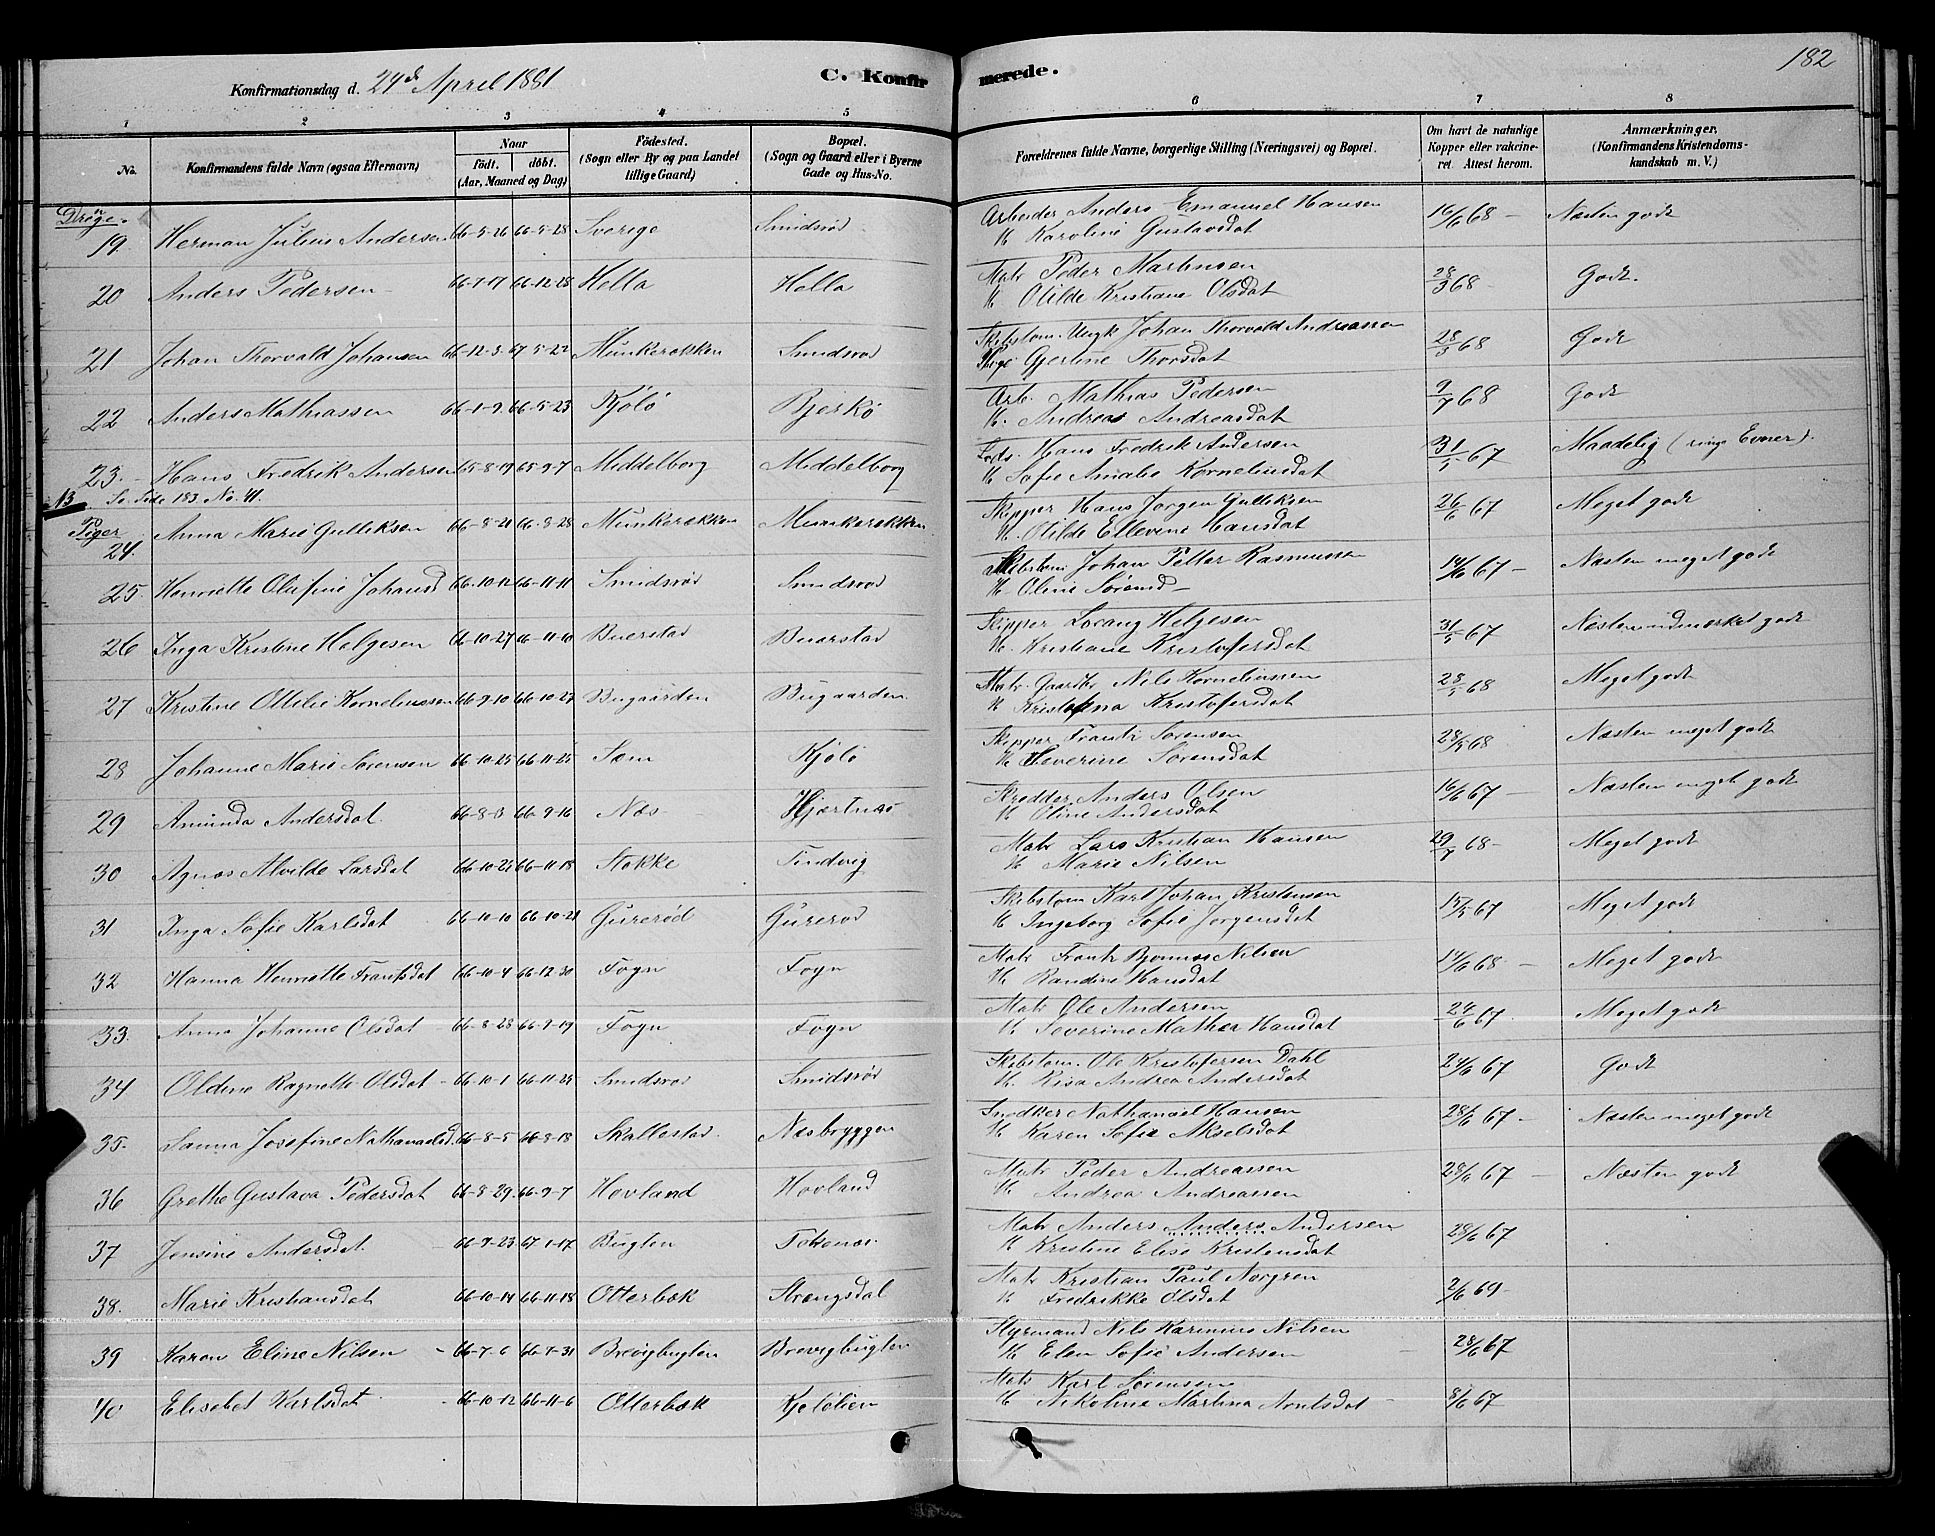 182
Konfirmationsdag d. 24de April 1881
C. Konfirmerede.
1 2 3 4 5 6 7 8
No. Konfirmandens fulde Navn (ogsaa Efternavn) Naar født. døbt. (Aar, Maaned og Dag) Födested. (Sogn eller By og paa Landet tillige Gaard) Bopæl. (Sogn og Gaard eller i Byerne Gade og Hus-No. Forældrenes fulde Navne, borgerlige Stilling (Næringsvei) og Bopæl. Om havt de naturlige Kopper eller vakcineret. Attest herom. Anmærkninger. (Konfirmandens Kristendomskundskab m. V.)
Drenge.
19 Herman Julius Andersen 66-5-26 66-5-28 Sverige Smidsrød Arbeider Anders Emanuel Hansen 16/6 68 - Næsten godt
H Karoline Gustavsdat
20 Anders Pedersen 66-7-17 66-12-28 Hella Hella Matr Peder Martinsen 28/3 68 Godt.
H Otilde Kristiane Olsdat
21 Johan Thorvald Johansen 66-12-3 67-5-22 Munkerekken Smidsrød Skibstøm. Ungk Johan Thorvald Andreassen 28/5 68 Godt
Pige Gjertine Thorsdat
22 Anders Mathiassen 66-1-9 66-5-23 Kjølø Bjerkø Arb. Mathias Pedersen 9/7 68 Godt
H. Andrea Andreasdat
23. Hans Fredrik Andersen 65-8-19 65-9-7 Middelborg Middelborg Hans Fredrik Andersen 31/5 67 Maadelig (ringe Evner).
H Sofie Amalie Kornelinsdat
13 Se Side 183 No. 41.
Piger
24. Anna Marie Gulliksen 66-8-21 66-8-28 Munkerekken Munkerekken Skipper Hans Jørgen Gulliksen 26/6 67 Meget godt
H. Otilde Ellevine Hansdat
25. Henriette Olufine Johansd 66-10-12 66-11-11 Smidsrød Smidsrød Skibstøm Johan Petter Rasmussen 14/6 67 - Næsten meget godt
H Oline Sørensd -
26 Inga Kristine Helgesen 66-10-27 66-11-10 Buerstad Buerstad Skipper Lorang Helgesen 31/5 67 Næsten udmærket godt
H. Kristiane Kristofersdat
27 Kristine Ottilie Korneliussen 66-9-10 66-10-23 Bugaarden Bugaarden Matr. Gaardbr Nils Korneliussen 28/5 68 Meget godt
H Kristofina Kristofersdat
28 Johanne Marie Sørensen 66-10-25 66-11-25 Sæm Kjølø Skipper Frantz Sørensen 28/5 68 Næsten meget godt
H Severine Sørensdat
29 Amunda Andersdat. 66-8-3 66-9-16 Næs Hjertnæs Skredder Anders Olsen 16/6 67 - Næsten meget godt
H Oline Andersdat
30 Agnes Alvilde Larsdat 66-10-21 66-11-18 Stokke Tindvig Matr Lars Kristian Hansen 29/7 68 - Meget godt
H Marie Nilsen
31 Inga Sofie Karlsdat 66-10-10 66-10-21 Gurerød Gurerød Skibstøm Karl Johan Kristensen 15/5 67 Meget godt
H Ingeborg Sofie Jørgensdat
32 Hanna Henriette Frantsdat 66-10-4 66-12-30 Fogn Fogn Matr Frantz Nilsen 14/6 68 - Meget godt
H Randine Hansdat
33. Anna Johanne Olsdat 66-8-28 66-9-19 Fogn Fogn Matr Ole Andersen 24/6 67. Meget godt
H. Severine Mathea Hansdat
34 Oldine Ragnette Olsdat 66-10-1 66-11-25 Smidsrød Smidsrød Skibstøm. Ole Kristofersen Dahl 24/6 67 Godt
H. Risa Andrea Andersdat
35. Sanna Josefine Nathanaelsd. 66-8-5 66-8-18 Skallestad. Næsbryggen Snedker Nathanael Hansen 28/6 67 - Næsten meget godt
H Karen Sofie Akselsdat
36 Grethe Gustava Pedersdat 66-8-29 66-9-7 Hovland Hovland Matr Peder Andreassen 28/6 67 - Næsten godt
H Andrea Andreassen
37 Jensine Andersdat. 66-9-23 67-1-17 Bugten Matr Anders Anders Andersen 28/6 67
H Kristine Elise Kristensdat
38. Marie Kristiansdat 66-10-14 66-11-18 Otterbæk Strengsdal Matr Kristian Paul Norgren 2/6 69 -
H Fredrikke Olsdat
39 Karen Eline Nilsen 66-7-6 66-7-31 Brevigbugten Brevigbugten Styrmand Nils Karinius Nilsen 28/6 67
H Elen Sofie Andersen
40 Elisebet Karlsdat 66-10-12 66-11-6 Otterbæk Kjølølien Matr Karl Sørensen 8/6 67
H Nikoline Martina Arntsdat